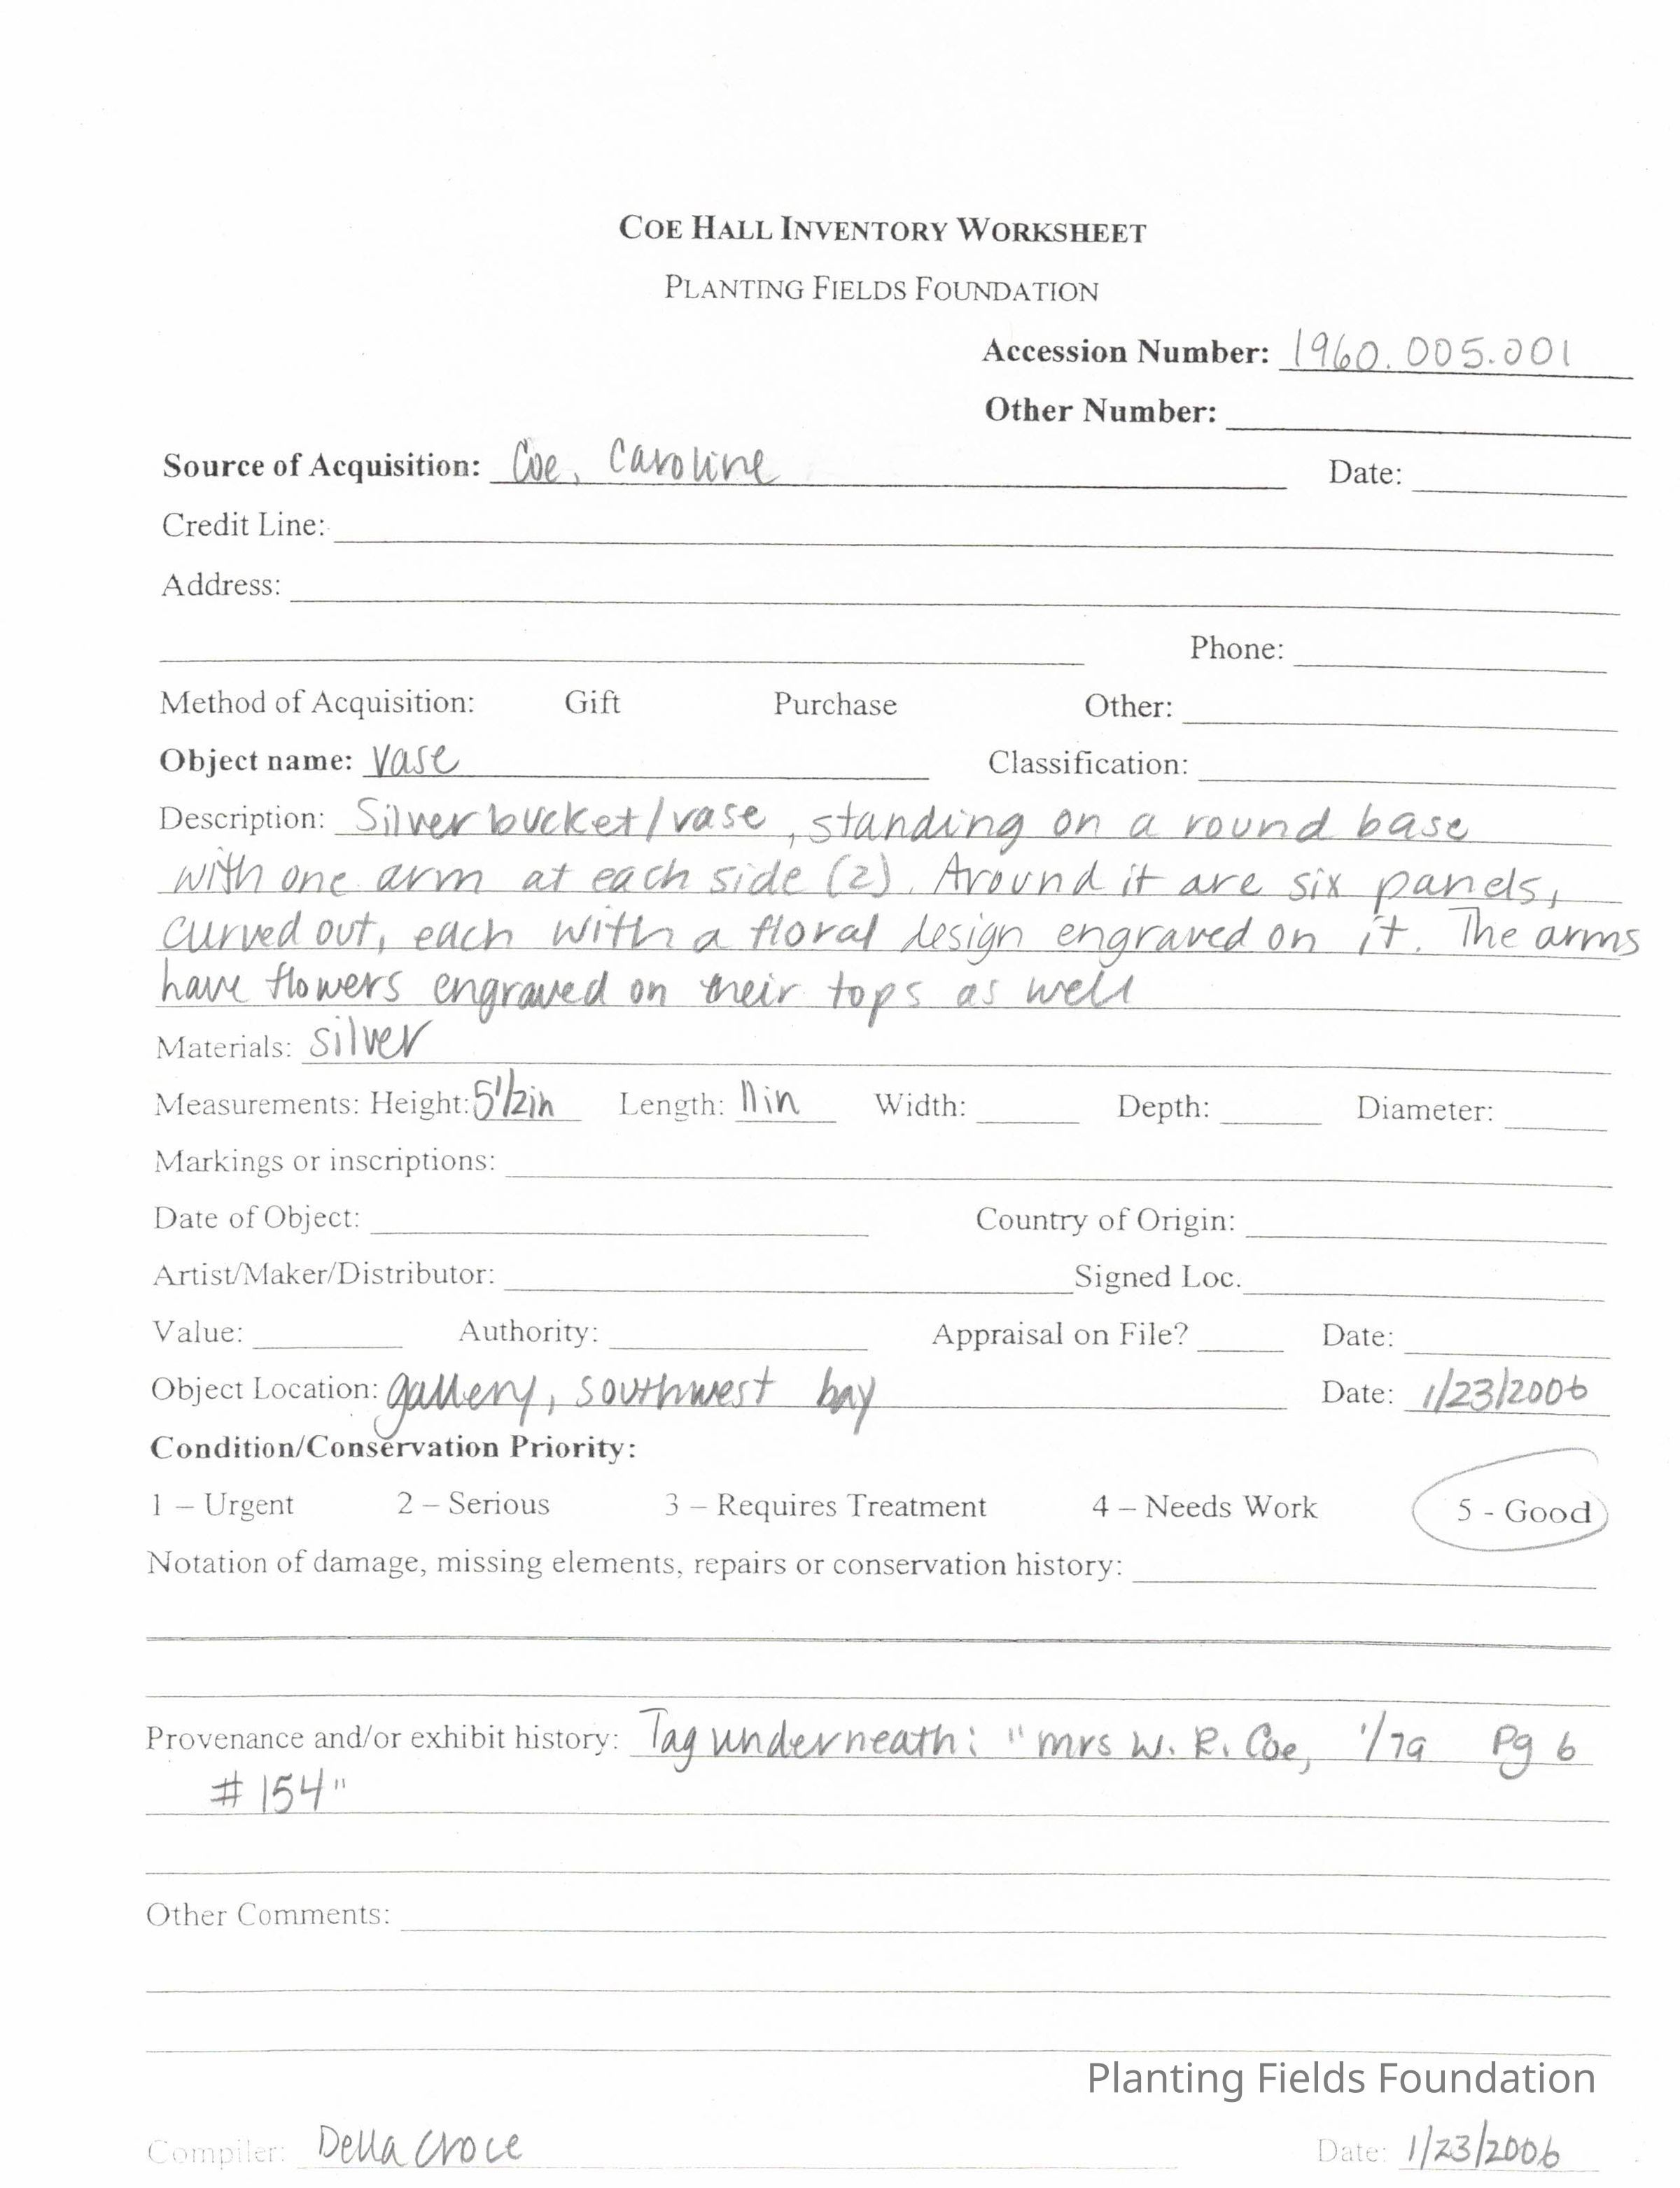 COE HALL INVENTORY WORKSHEET
PLANTING FIELDS FOUNDATION
Accession Number: 1960.005.001
Other Number:
Source of Acquisition: Coe, Caroline Date:
Credit Line:
Address:
Phone:
Method of Acquisition: Gift Purchase Other:
Object name: Vase Classification:
Description: Silver bucket/vase, standing on a round base
with one arm at each side (2). Around it are six panels,
curved out, each with a floral design engraved on it. The arms
have flowers engraved on their tops as well
Materials: silver
Measurements: Height: 5 1/2in Length: 11in Width: Depth: Diameter:
Markings or inscriptions:
Date of Object: Country of Origin:
Artist/Maker/Distributor: Signed Loc.
Value: Authority: Appraisal on File? Date:
Object Location: gallery, southwest bay Date: 1/23/2006
Condition/Conservation Priority:
1 – Urgent 2 – Serious 3 – Requires Treatment 4 – Needs Work 5 - Good
Notation of damage, missing elements, repairs or conservation history:
Provenance and/or exhibit history: Tag underneath: "mrs W. R. Coe, 1/79 Pg 6
# 154"
Other Comments:
Planting Fields Foundation
Compiler: Della Croce Date: 1/23/2006